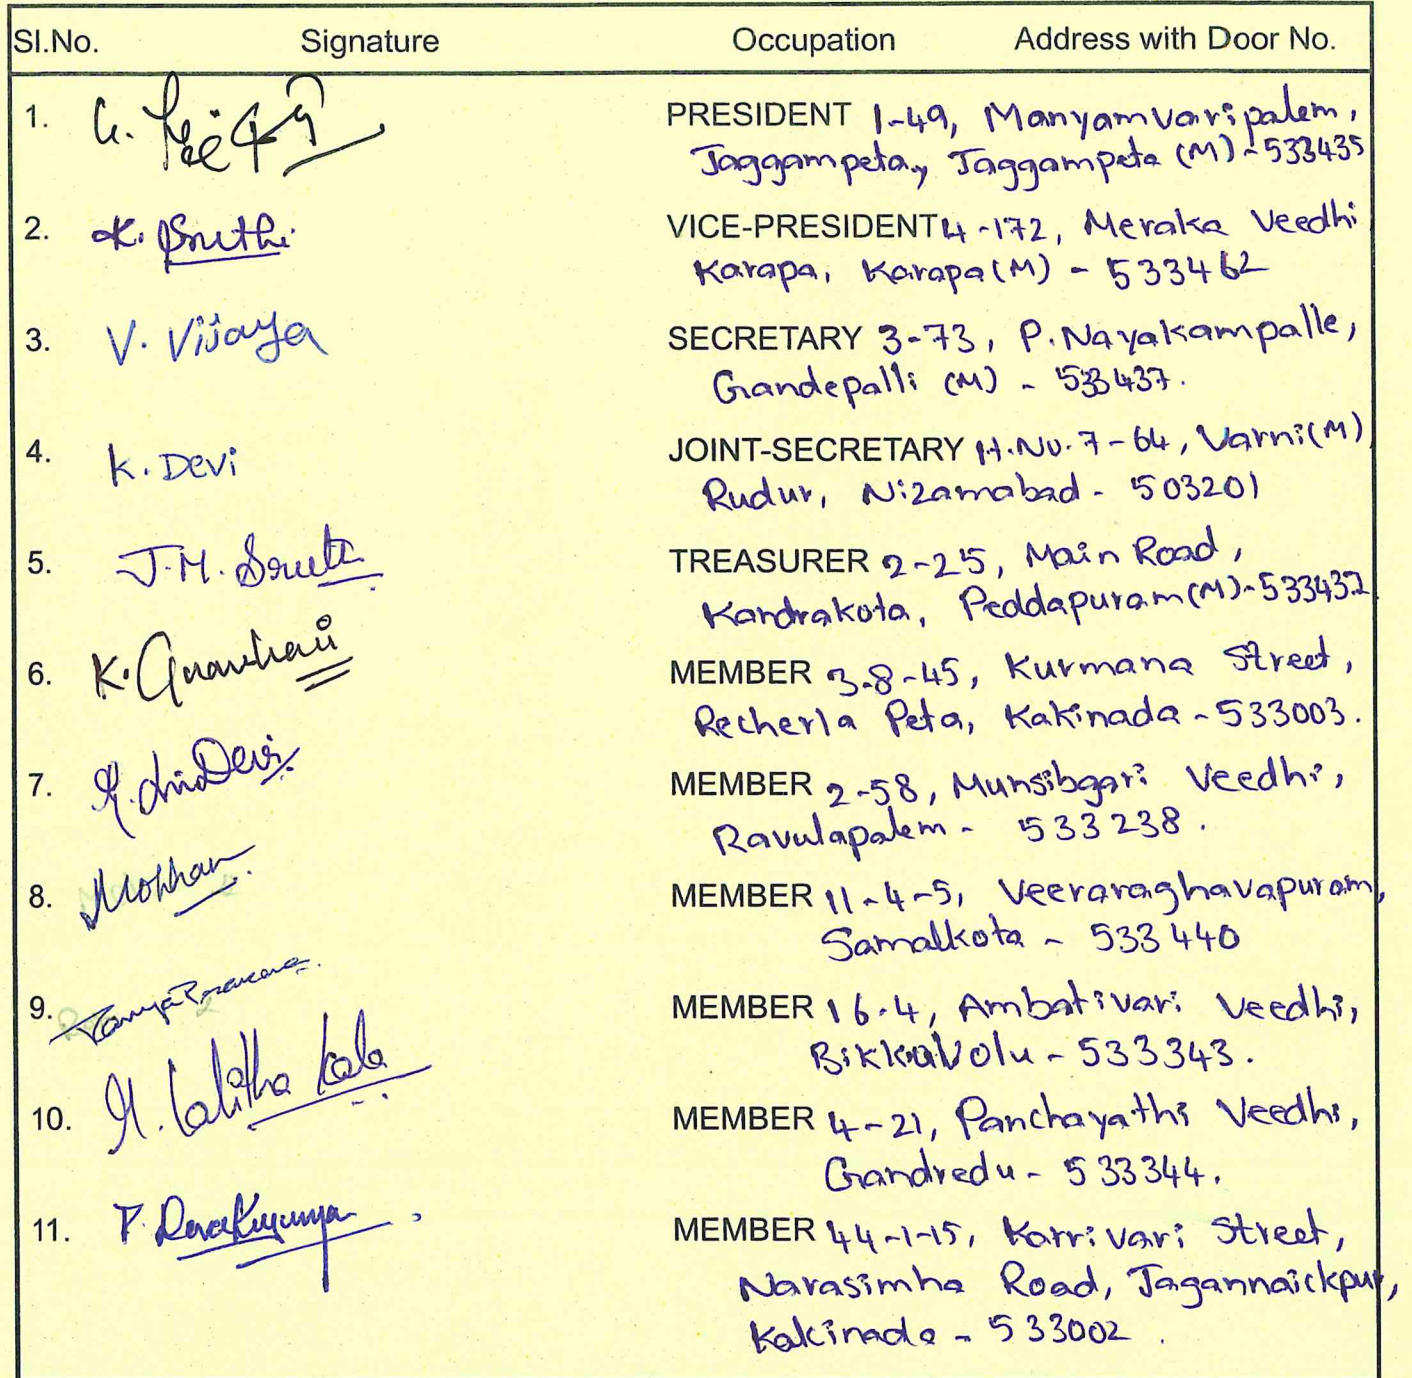 Sl.No. Signature Occupation Address with Door No.
1. PRESIDENT 1-49, Manyamvaripalem,
Jaggampeta, Jaggampeta (M) - 533435
2. K. Sruthi VICE-PRESIDENT 4-172, Meraka Veedhi
Karapa, Karapa (M) - 533462
3. V. Vijaya SECRETARY 3-73, P. Nayakampalle,
Gandepalli (M) - 533437.
4. K. Devi JOINT-SECRETARY H.No. 7-64, Varni (M)
Rudur, Nizamabad - 503201
5. J.M. TREASURER 2-25, Main Road,
Kandrakota, Peddapuram (M) - 533437
6. K. MEMBER 3-8-45, Kurmana Street,
Recherla Peta, Kakinada - 533003.
7. Devi MEMBER 2-58, Munsibgari Veedhi,
Ravulapalem - 533238.
8. MEMBER 11-4-5, Veeraraghavapuram,
Samalkota - 533 440
9. MEMBER 16-4, Ambativari Veedhi,
Bikkavolu - 533343.
10. Lalitha Kala MEMBER 4-21, Panchayathi Veedhi,
Gandredu - 533344.
11. MEMBER 44-1-15, Karrivari Street,
Narasimha Road, Jagannaickpur,
Kakinada - 533002.